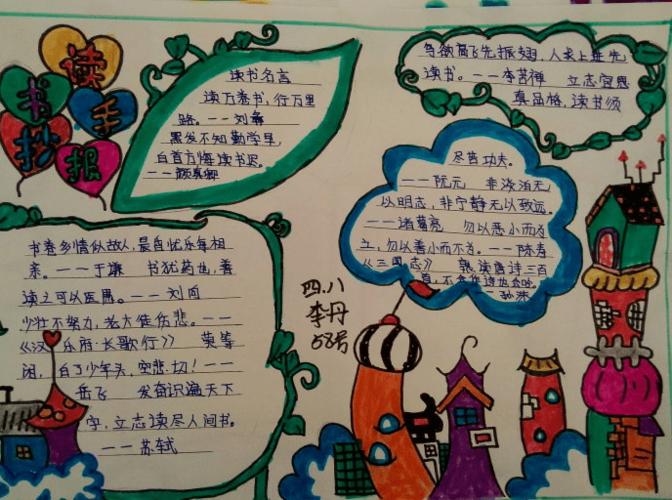 读书手抄报
读书名言
读万卷书,行万里
路。——刘彝
黑发不知勤学早,
白首方悔读书迟。
——颜真卿
鸟欲高飞先振翅,人求上进先
读书。——李苦禅 立志宜思
真品格,读书须
尽苦功夫。
——阮元 非淡泊无
以明志,非宁静无以致远。
——诸葛亮 勿以恶小而为
之,勿以善小而不为。——陈寿
《三国志》 熟读唐诗三百
首,不会作诗也会吟。
——孙洙
书卷多情似故人,晨昏忧乐每相
亲。——于谦 书犹药也,善
读之可以医愚。——刘向
少壮不努力,老大徒伤悲。——
《汉乐府·长歌行》 莫等
闲,白了少年头,空悲切!——
岳飞 发奋识遍天下
字,立志读尽人间书。
——苏轼
四.八
李丹
58号